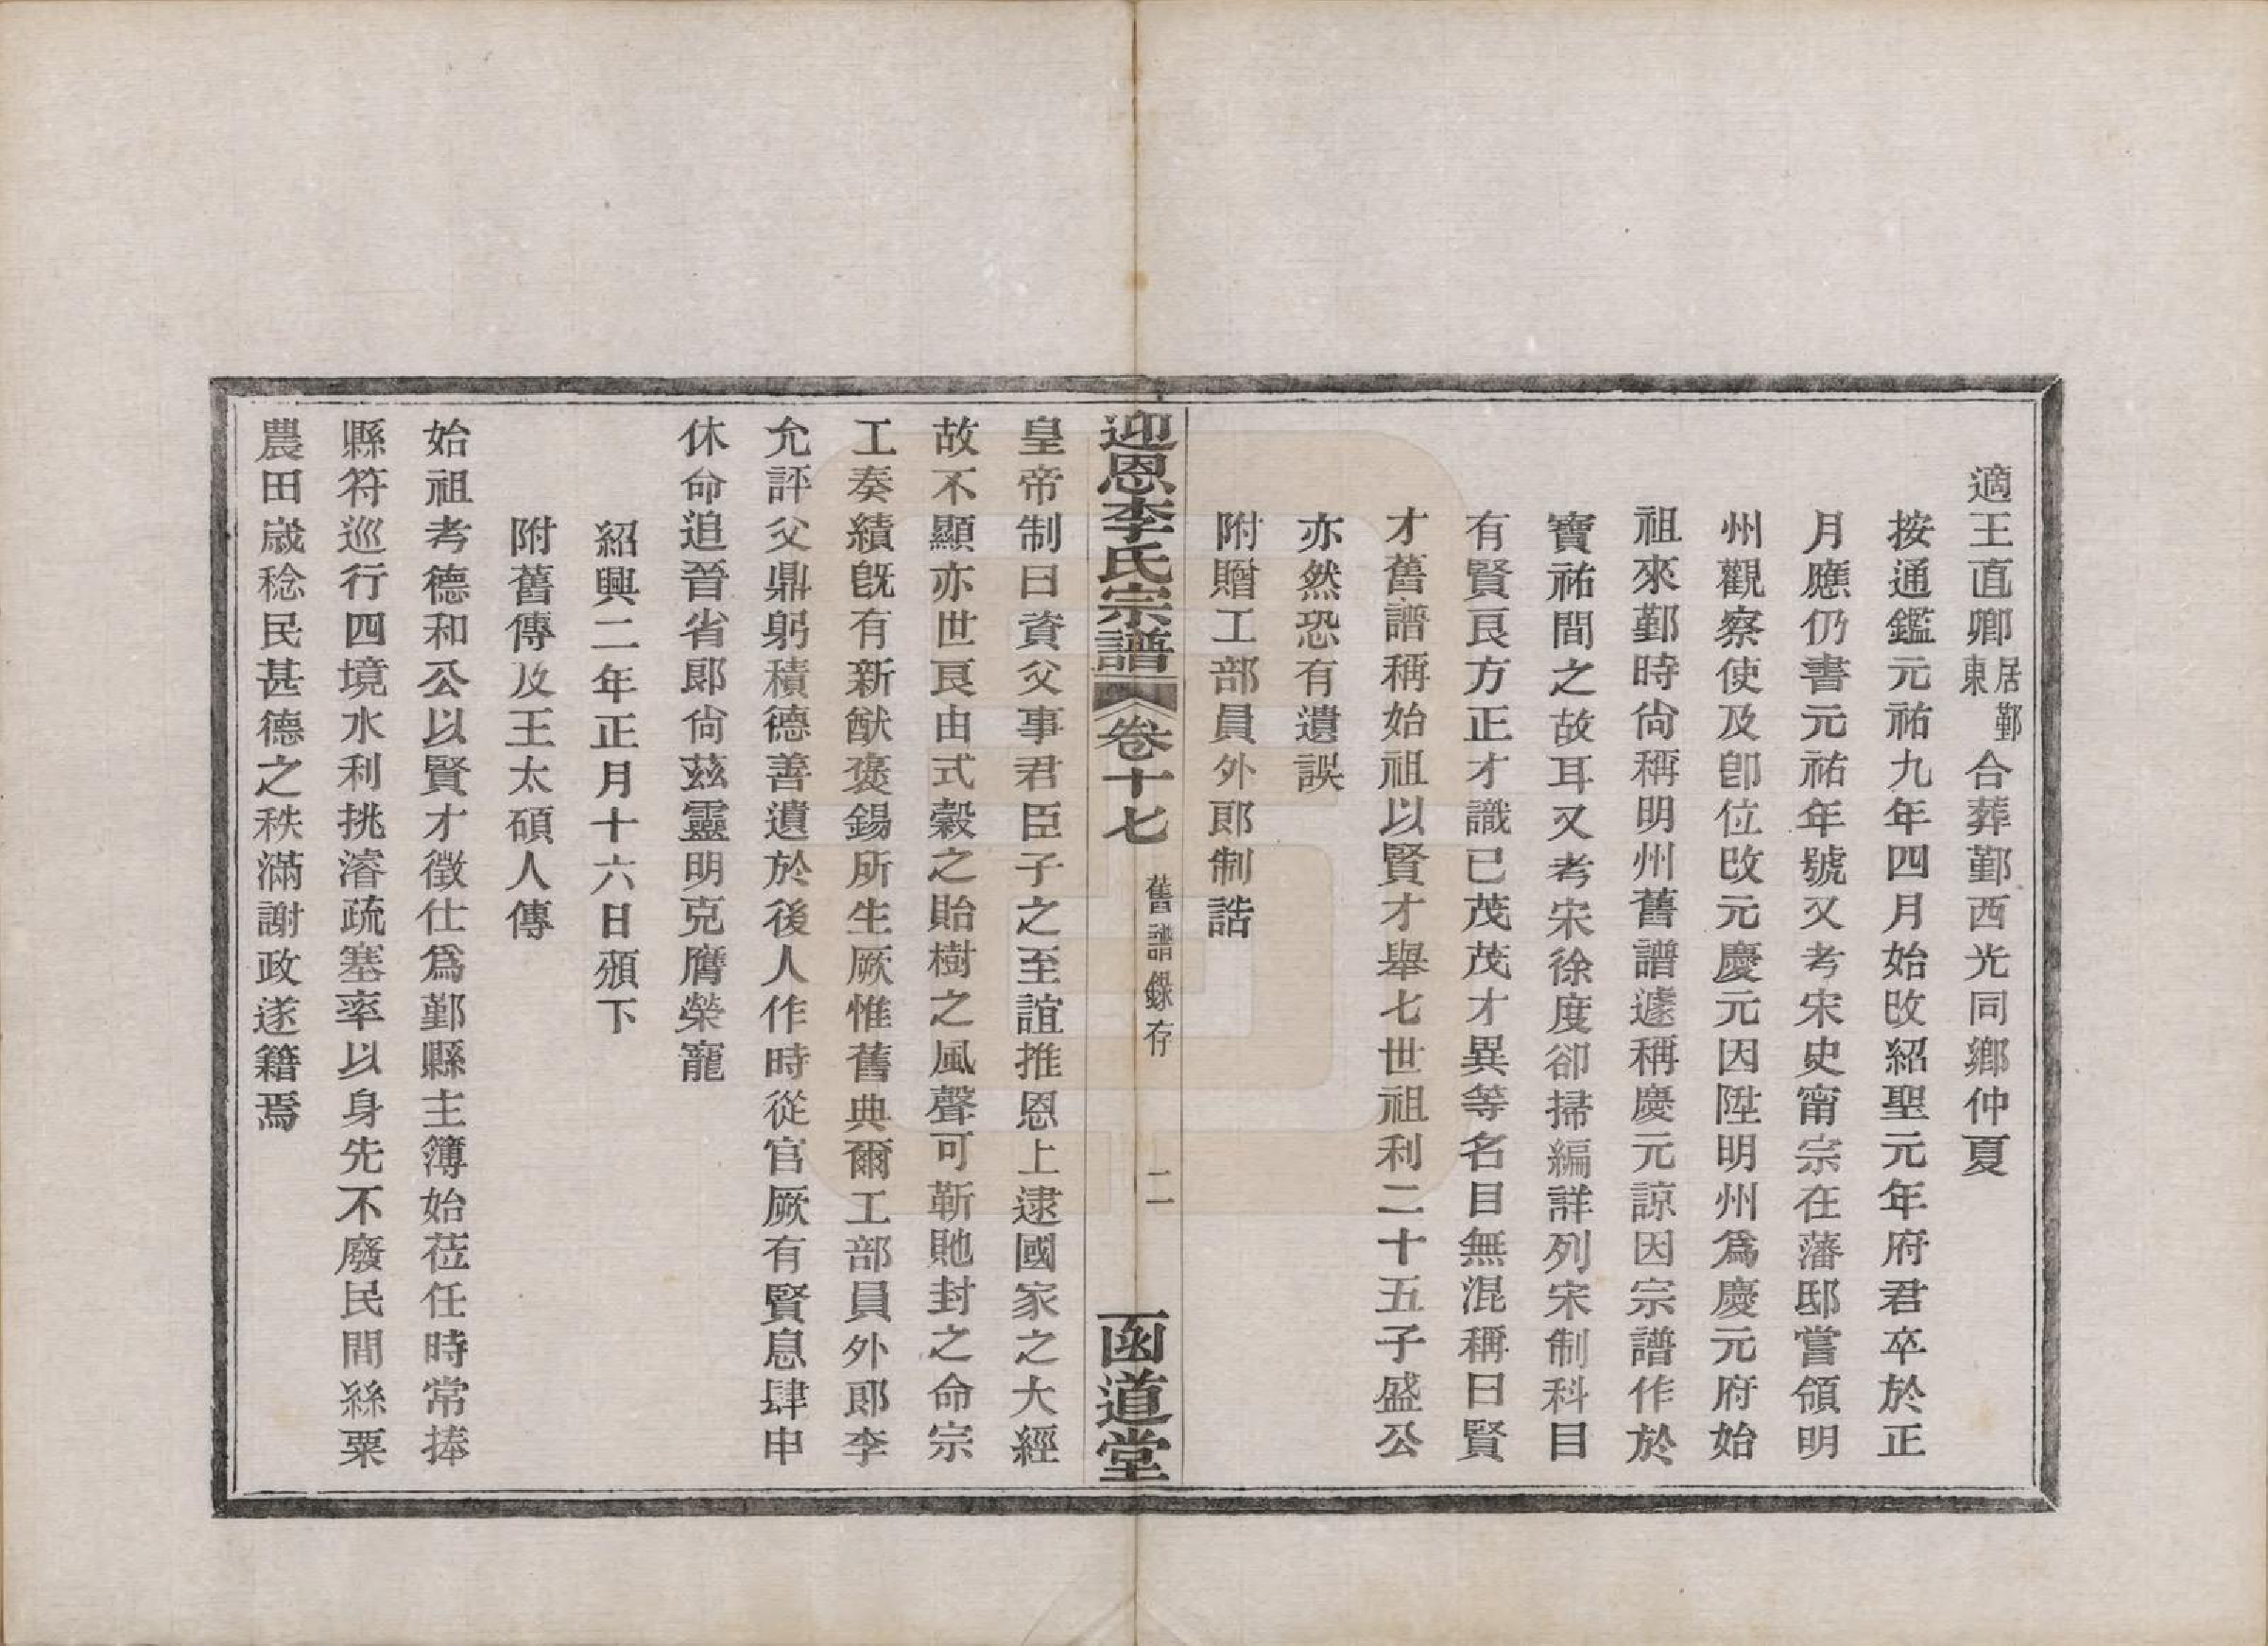 適王直卿居鄞東合葬鄞西光同鄉仲夏
按通鑑元祐九年四月始改紹聖元年府君卒於正
月應仍書元祐年號又考宋史甯宗在藩邸嘗領明
州觀察使及卽位改元慶元因陞明州爲慶元府始
祖來鄞時尙稱明州舊譜遽稱慶元諒因宗譜作於
寶祐間之故耳又考宋徐度卻掃編詳列宋制科目
有賢良方正才識已茂茂才異等名目無混稱曰賢
才舊譜稱始祖以賢才舉七世祖利二十五子盛公
亦然恐有遺誤
附贈工部員外郎制誥
迎恩李氏宗譜 卷十七 舊譜錄存 二 函道堂
皇帝制曰資父事君臣子之至誼推恩上逮國家之大經
故不顯亦世良由式穀之貽樹之風聲可靳貤封之命宗
工奏績旣有新猷褒錫所生厥惟舊典爾工部員外郎李
允評父鼎躬積德善遺於後人作時從官厥有賢息肆申
休命追晉省郎尙茲靈明克膺榮寵
紹興二年正月十六日頒下
附舊傳及王太碩人傳
始祖考德和公以賢才徵仕爲鄞縣主簿始莅任時常捧
縣符巡行四境水利挑濬疏塞率以身先不廢民間絲粟
農田歲稔民甚德之秩滿謝政遂籍焉